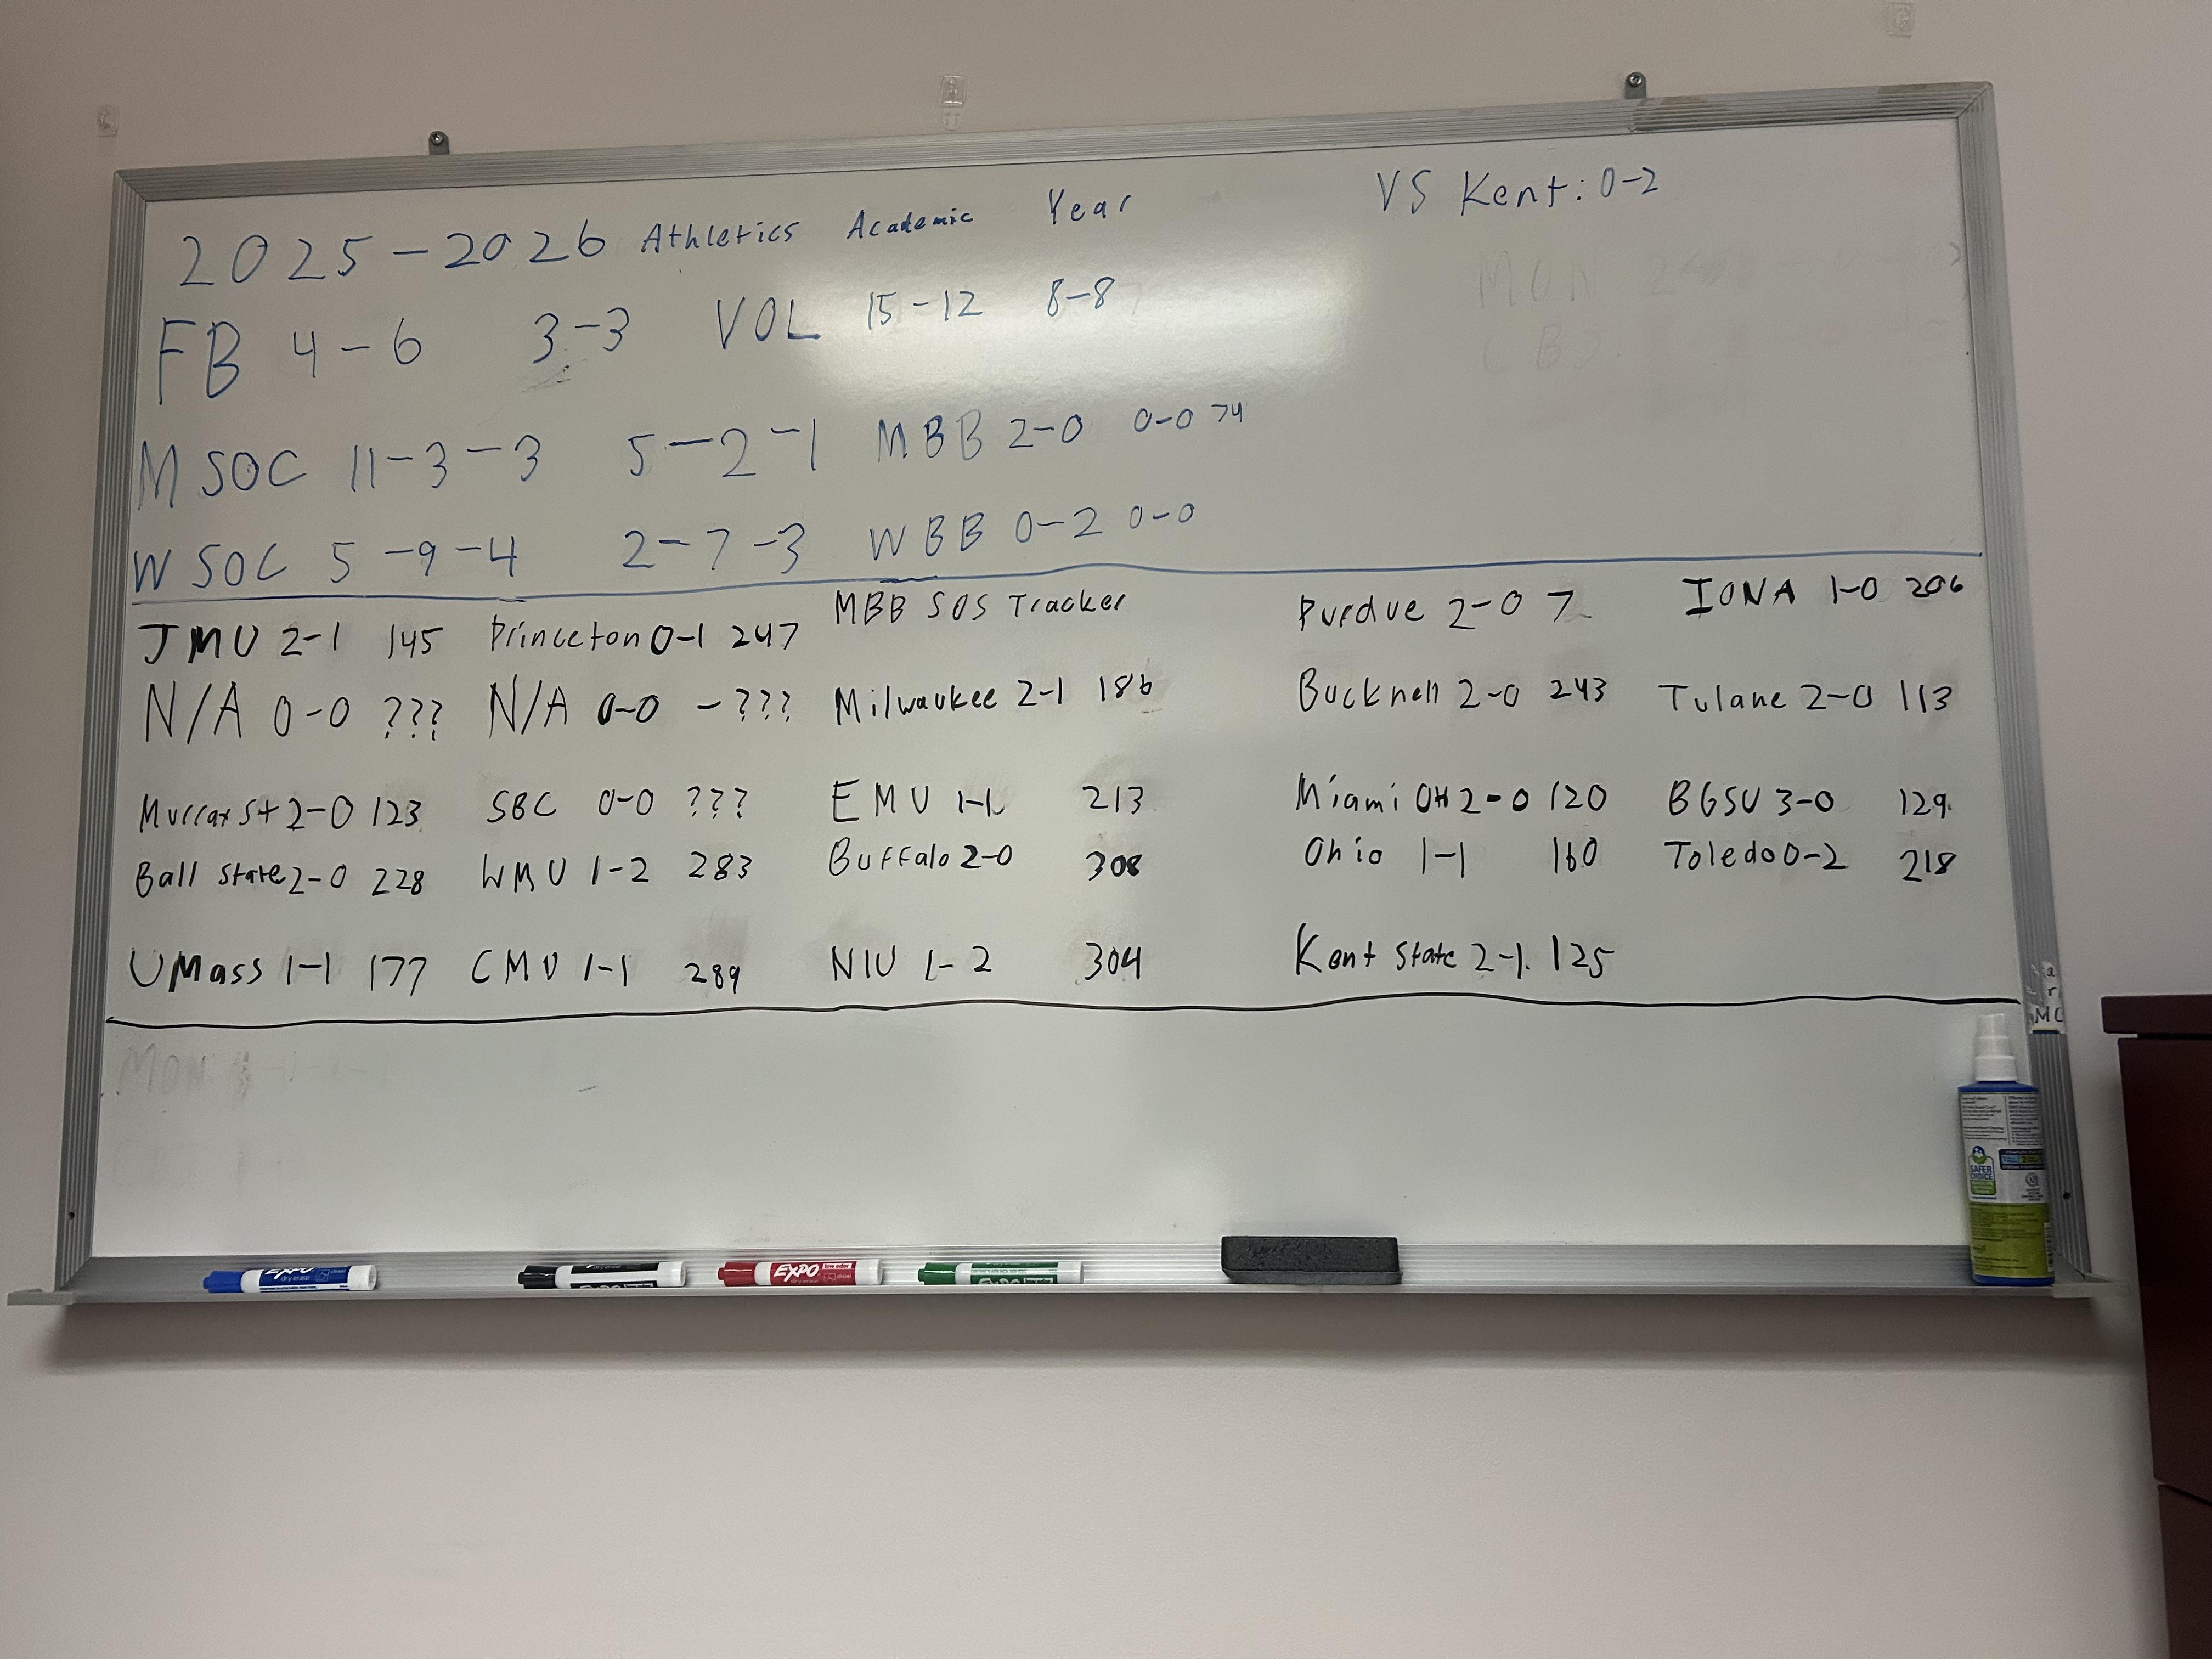 VS Kent: 0-2
2025-2026 Athletics Academic Year
FB 4-6 3-3 VOL 15-12 8-8
MSOC 11-3-3 5-2-1 MBB 2-0 0-0 74
WSOC 5-9-4 2-7-3 WBB 0-2 0-0
MBB SOS Tracker
JMU 2-1 145 Princeton 0-1 247 Purdue 2-0 7 IONA 1-0 206
N/A 0-0 ??? N/A 0-0 -??? Milwaukee 2-1 186 Bucknell 2-0 243 Tulane 2-0 113
Murray St 2-0 123 SBC 0-0 ??? EMU 1-1 213 Miami OH 2-0 120 BGSU 3-0 129
Ball State 2-0 228 WMU 1-2 283 Buffalo 2-0 308 Ohio 1-1 160 Toledo 0-2 218
UMass 1-1 177 CMU 1-1 289 NIU 1-2 304 Kent State 2-1 125
EXPO
dry erase
EXPO
EXPO
SAFER
CHOICE